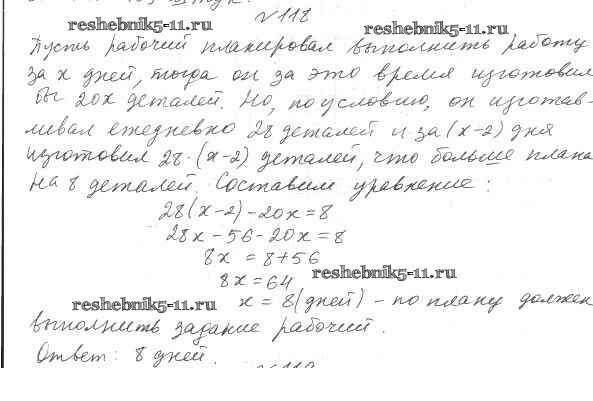 №118
reshebnik5-11.ru reshebnik5-11.ru
Пусть рабочий планировал выполнить работу
за x дней, тогда он за это время изготовил
бы 20x деталей. Но, по условию, он изготав-
ливал ежедневно 28 деталей и за (x-2) дня
изготовил 28·(x-2) деталей, что больше плана
на 8 деталей. Составим уравнение:
28(x-2)-20x=8
28x-56-20x=8
8x=8+56
8x=64 reshebnik5-11.ru
reshebnik5-11.ru x=8(дней) - по плану должен
выполнить задание рабочий.
Ответ: 8 дней.